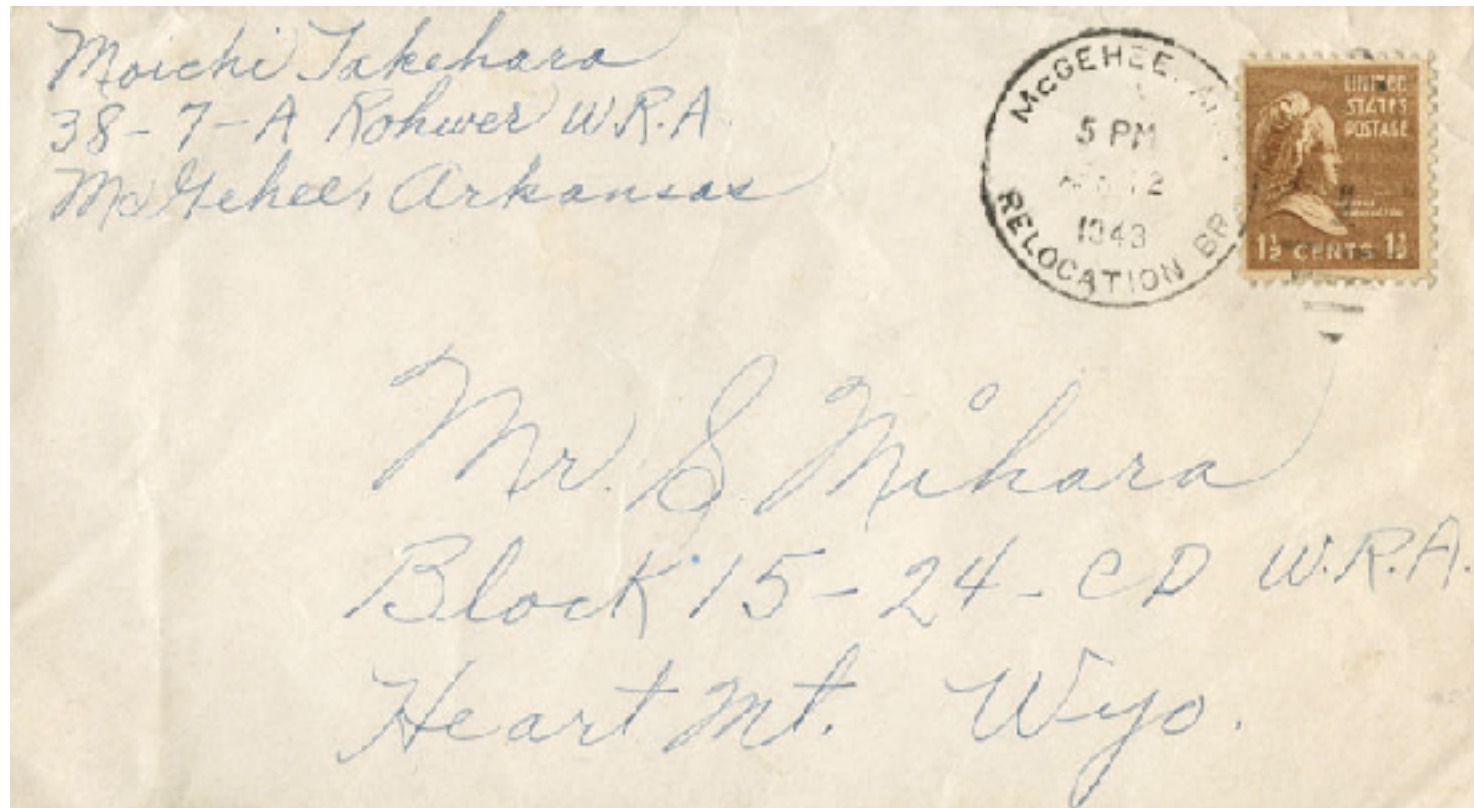 Moichi Takehara
38-7-A Rohwer W.R.A.
McGehee, Arkansas
McGEHEE,
5 PM
12
1943
RELOCATION BR
UNITED
STATES
POSTAGE
1½ CENTS 1½
Mr. S Mihara
Block 15-24-CD W.R.A.
Heart Mt. Wyo.